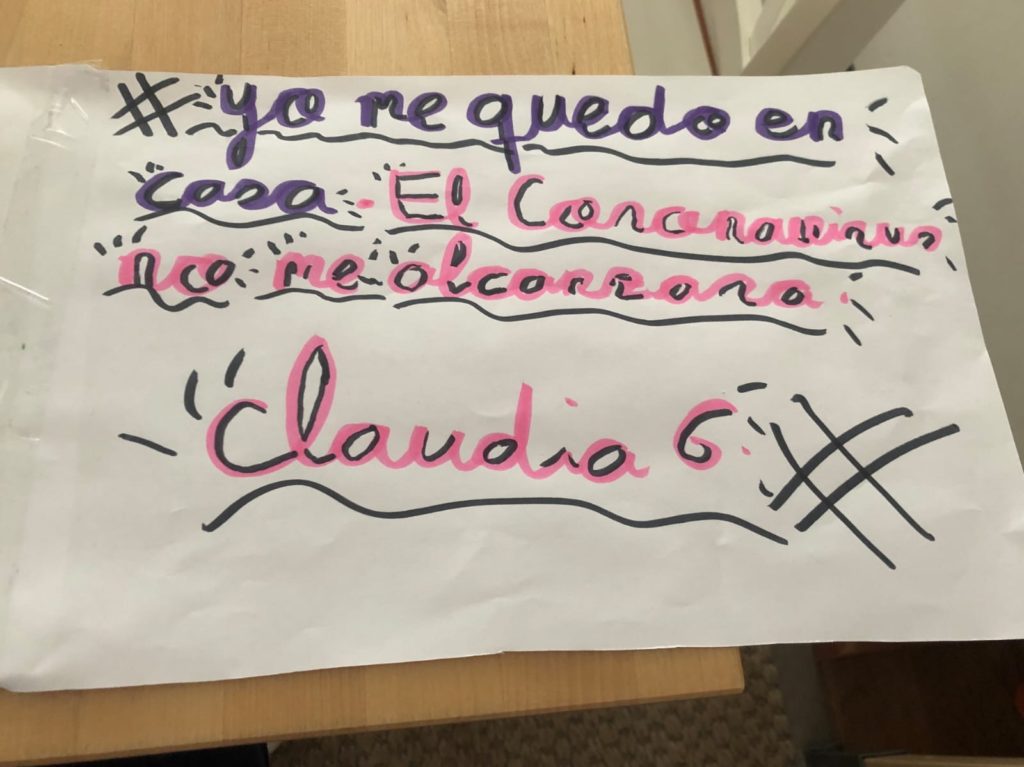 #yo me quedo en
casa. El Coronavirus
no me alcanzara.
Claudia G. #